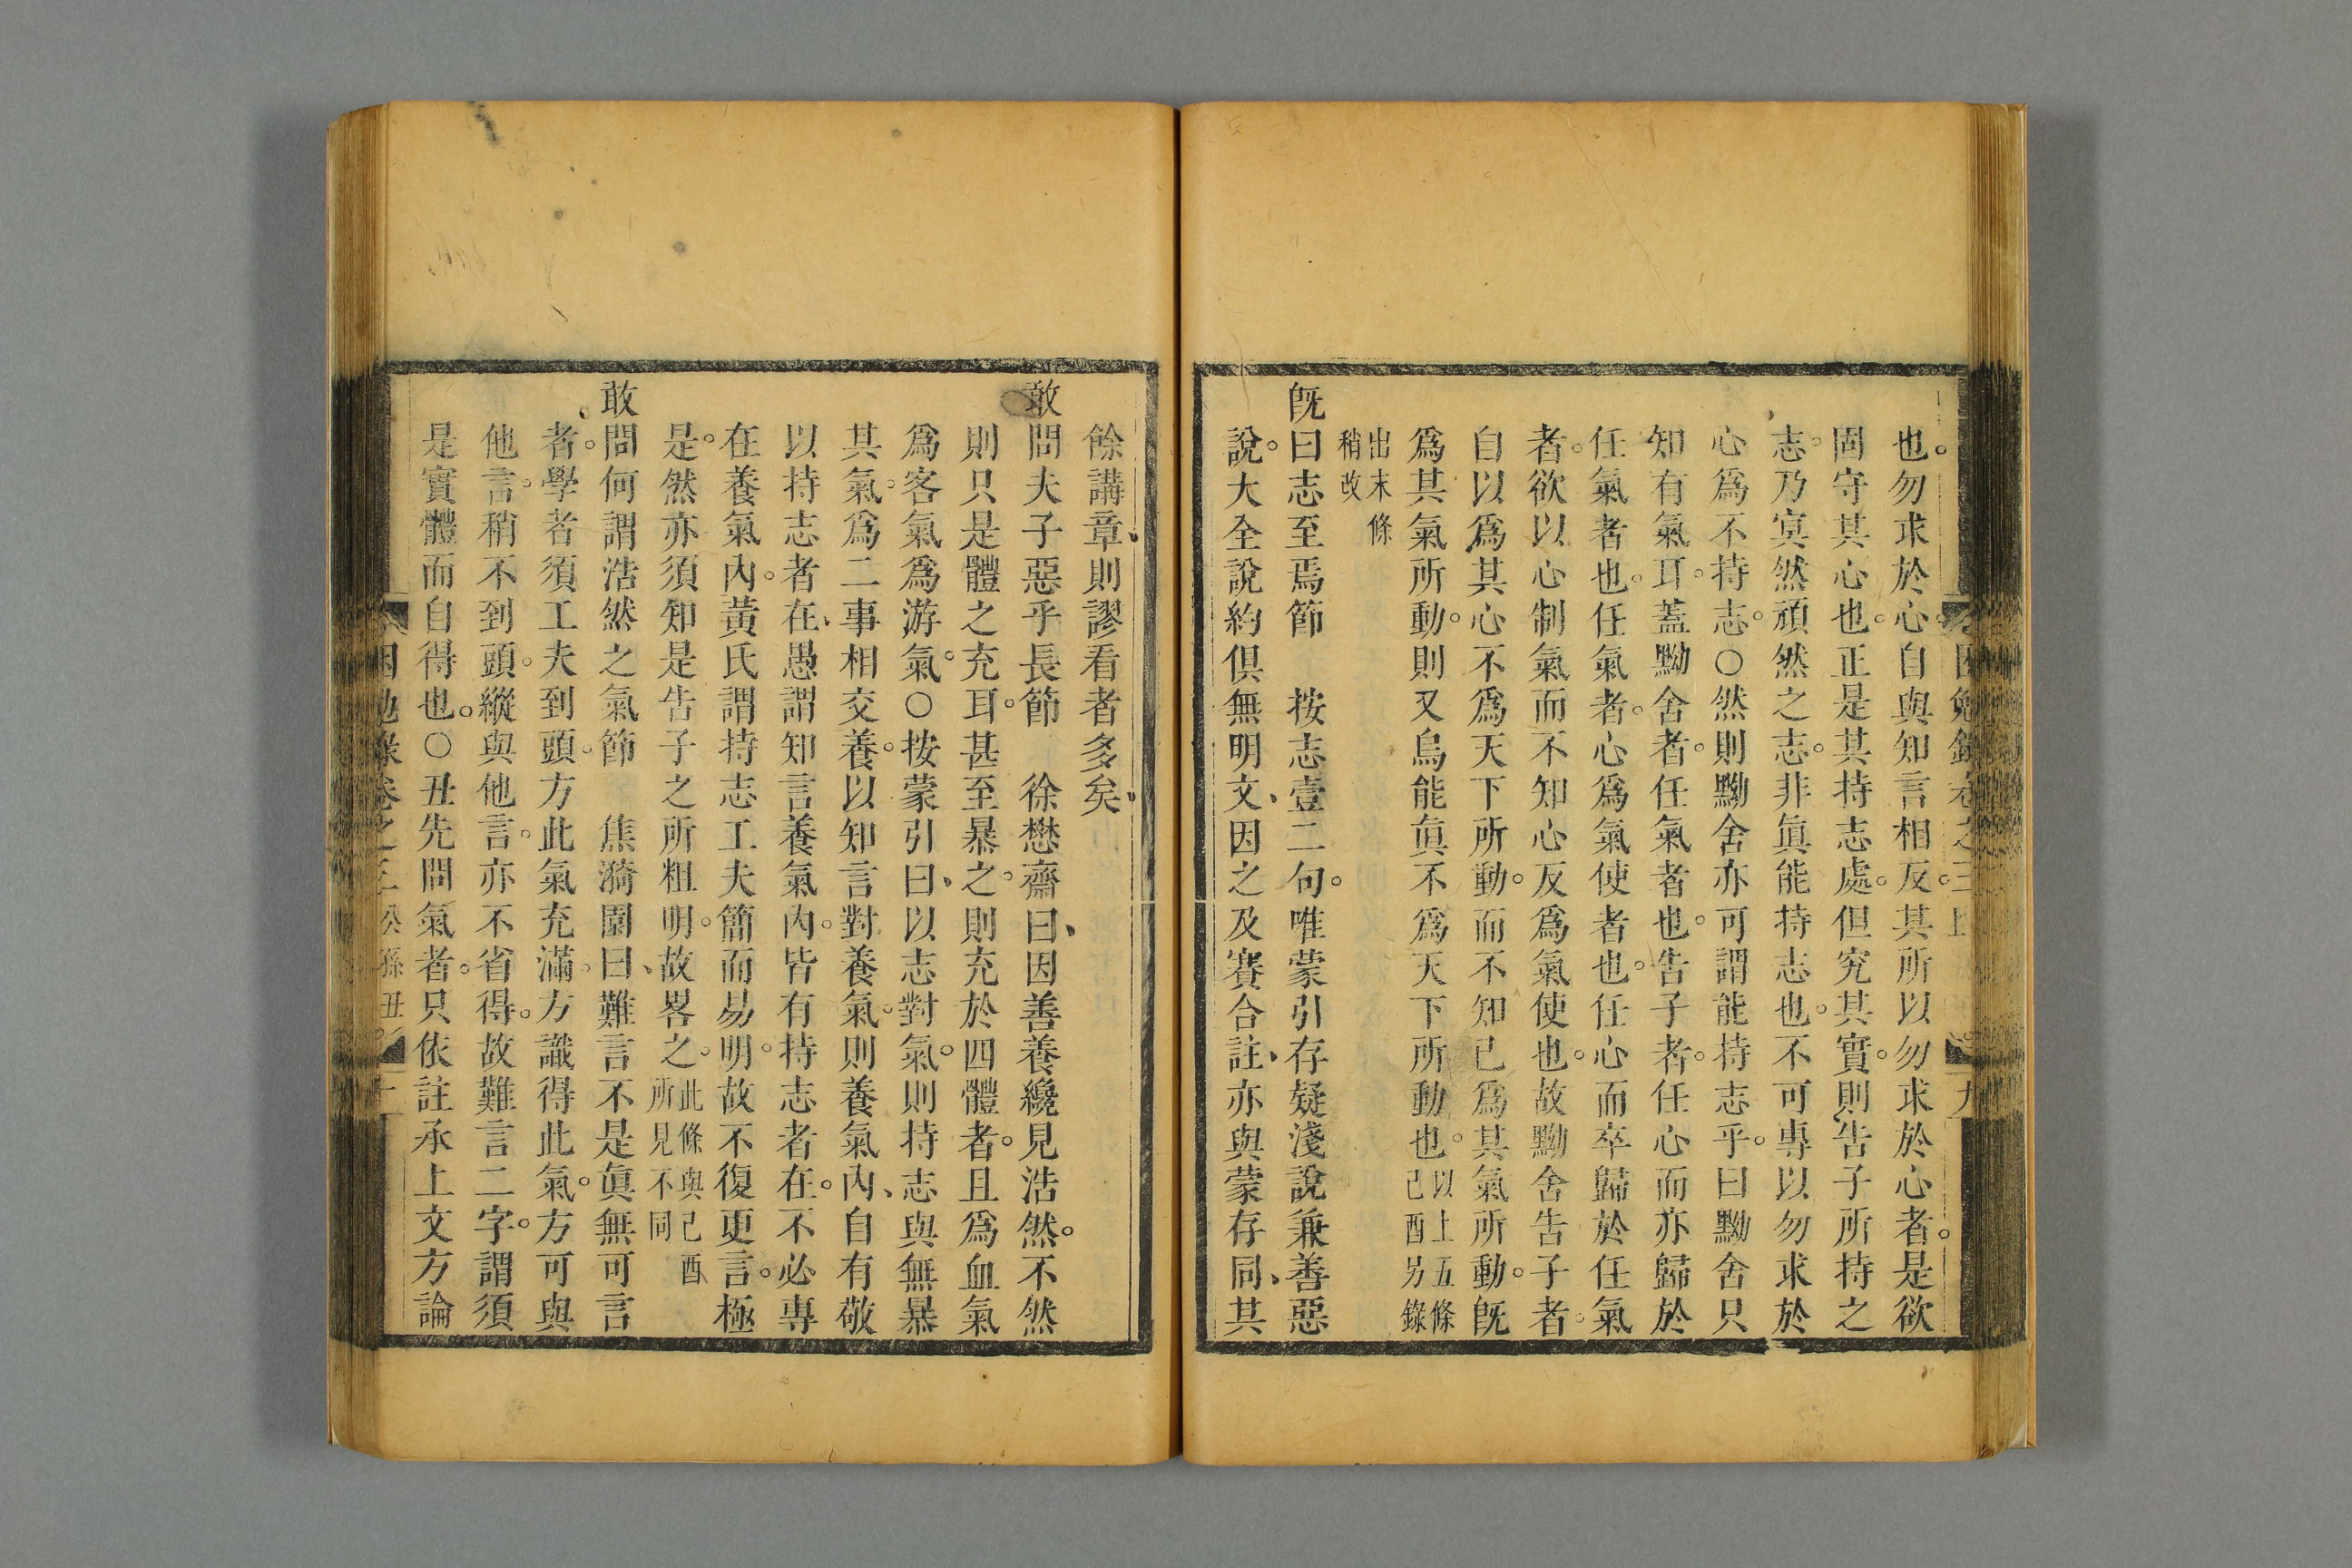 也。勿求於心。自與知言相反。其所以勿求於心者。是欲
固守其心也。正是其持志處。但究其實。則告子所持之
志。乃冥然頑然之志。非眞能持志也。不可專以勿求於
心爲不持志。○然則黝舍亦可謂能持志乎。曰黝舍只
知有氣耳。蓋黝舍者。任氣者也。告子者。任心而亦歸於
任氣者也。任氣者。心爲氣使者也。任心而卒歸於任氣
者。欲以心制氣而不知心反爲氣使也。故黝舍告子者。
自以爲其心不爲天下所動。而不知已爲其氣所動。旣
爲其氣所動。則又烏能眞不爲天下所動也。以上五條
己酉另錄
出末條
稍改
旣曰志至焉節 按志壹二句。唯蒙引存疑淺說兼善惡
說。大全說約俱無明文、因之及賽合註、亦與蒙存同、其
餘講章、則謬看者多矣、
敢問夫子惡乎長節 徐懋齋曰、因善養纔見浩然。不然
則只是體之充耳。甚至暴之。則充於四體者。且爲血氣
爲客氣爲游氣。○按蒙引曰、以志對氣。則持志與無暴
其氣。爲二事相交養。以知言對養氣。則養氣內、自有敬
以持志者在、愚謂知言養氣內。皆有持志者在。不必專
在養氣內。黃氏謂持志工夫簡而易明。故不復更言。極
是。然亦須知是告子之所粗明。故畧之。此條與己酉
所見不同
敢問何謂浩然之氣節 焦漪園曰、難言不是眞無可言
者。學者須工夫到頭。方此氣充滿。方識得此氣。方可與
他言。稍不到頭。縱與他言。亦不省得。故難言二字。謂須
是實體而自得也。○丑先問氣者。只依註承上文方論